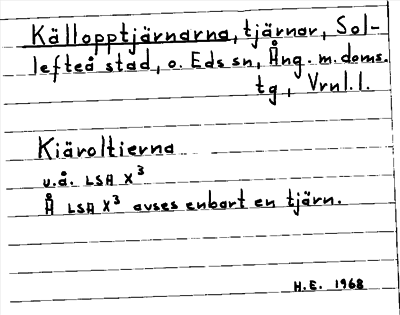 Källopptjärnarna, tjärnar, Sol-
lefteå stad, o. Eds sn, Ång. m. doms.
tg, Vrnl. l.
Kiäroltierna
u.å. LSA X³
Å LSA X³ avses enbart en tjärn.
H.E. 1968